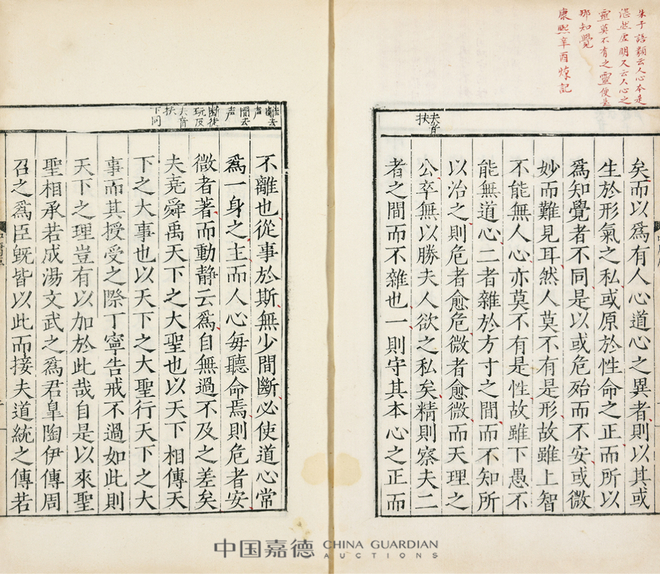 朱子語類云人心本是
湛然虛明又云人心之
靈莫不有之靈便是
那知覺
康熙辛酉煒記
夫音
扶
矣而以爲有人心道心之異者則以其或
生於形氣之私或原於性命之正而所以
爲知覺者不同是以或危殆而不安或微
妙而難見耳然人莫不有是形故雖上智
不能無人心亦莫不有是性故雖下愚不
能無道心二者雜於方寸之間而不知所
以治之則危者愈危微者愈微而天理之
公卒無以勝夫人欲之私矣精則察夫二
者之間而不雜也一則守其本心之正而
離去
聲
間去
聲
斷徒
玩反
夫音
扶
下同
不離也從事於斯無少間斷必使道心常
爲一身之主而人心每聽命焉則危者安
微者著而動靜云爲自無過不及之差矣
夫堯舜禹天下之大聖也以天下相傳天
下之大事也以天下之大聖行天下之大
事而其授受之際丁寧告戒不過如此則
天下之理豈有以加於此哉自是以來聖
聖相承若成湯文武之爲君皐陶伊傅周
召之爲臣旣皆以此而接夫道統之傳若
中国嘉德 CHINA GUARDIAN
AUCTIONS